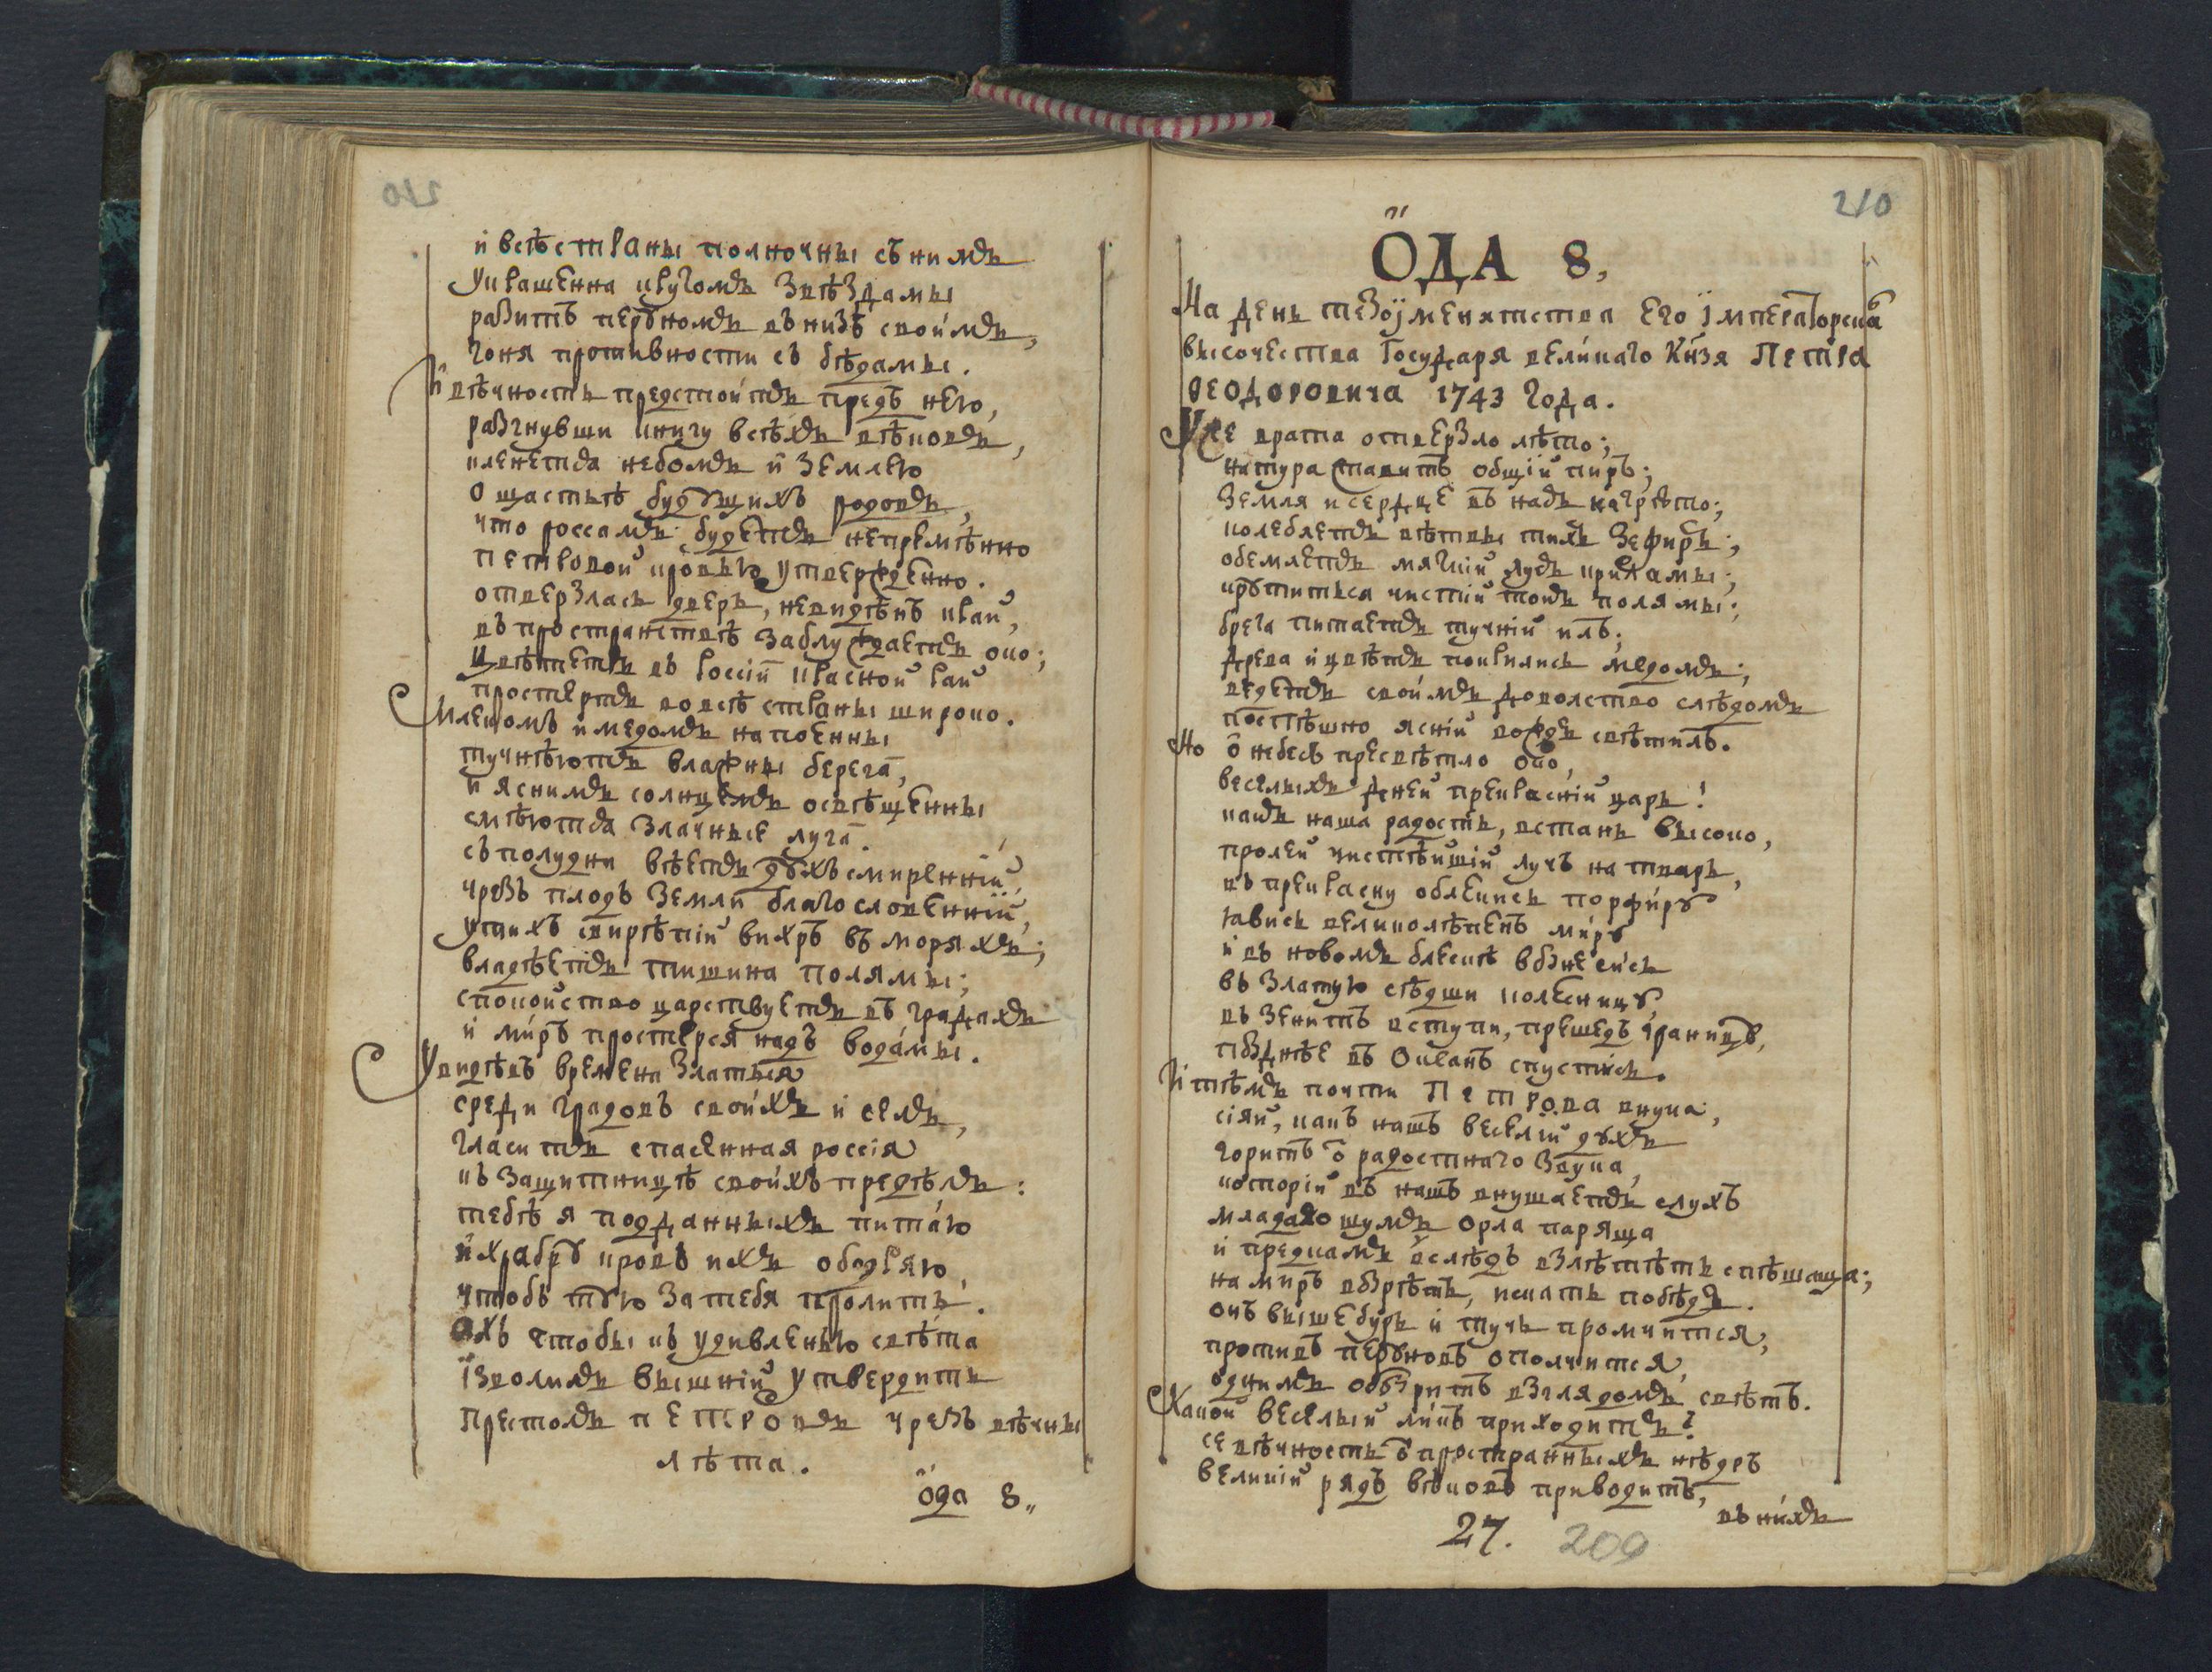 и всѣ страны полночны съ нимъ
Украшенна кругомъ звѣздамы
разитъ перуномъ въ низъ своимъ,
гоня противности съ бѣдамы.
И вѣчность предстоитъ предъ нею,
разгнувши книгу всѣхъ вѣковъ,
кленется небомъ и землею
о щастьѣ будущихъ родовъ,
что россамъ будетъ непремѣнно
петровой кровью утвержденно.
отверзлась дверь, невидѣнъ край,
въ пространствѣ заблуждаетъ око;
цвѣтетъ въ россіи красной рай
простертъ во всѣ страны широко.
Млекомъ и медомъ напоенны
тучнѣютъ влажны берега,
и яснимъ солнцемъ освѣщенны
смѣются злачные луга.
съ полудни вѣетъ духъ смиренній
чрезъ плодъ земли благословенній,
утихъ свирѣпій вихръ въ моряхъ;
владѣетъ тишина полямы;
спокойство царствуетъ въ градахъ
и миръ простерся надъ водамы.
Увидѣвъ времена златыя
среди градовъ своихъ и селъ,
гласитъ спасенная россія
къ защитницѣ своихъ предѣлъ:
тебѣ я подданныхъ питаю
и храбру кровь ихъ ободряю,
чтобъ тую за тебя пролить.
ахъ чтобы къ удивленью свѣта
ізволилъ вышній утвердить
престолъ петровъ чрезъ вѣчны
лѣта.
ода 8„
210
ОДА 8,
На день тезоіменитства его імператорска
высочества государя великаго Кнзя Петра
Феодоровича 1743 года.
Уже врата отверзло лѣто;
натура ставитъ общій пиръ;
земля и сердце въ насъ нагрѣто;
колеблетъ вѣтвы тихъ зефиръ;
обемлетъ мягкій лугъ криламы;
крутиться чистій токъ полямы;
брега питаетъ тучній илъ;
древа и цвѣтъ покрились медомъ;
ведетъ своимъ доволство слѣдомъ
поспѣшно ясній вождь свѣтилъ.
Но о небесъ пресвѣтло око,
веселыхъ дней прекрасній царь!
какъ наша радость, встань высоко,
пролей чистѣйшій лучъ на тварь,
въ прекрасну облекись порфиру
явись великолѣпенъ миру
и въ новомъ блескѣ взнесись
въ златую сѣдши колесницу,
въ зенитъ вступи, прешедъ границу,
позднѣе въ Окіанъ спустись.
И тѣмъ почти Петрова внука;
сіяй, какъ нашъ веселій духъ
горитъ ѿ радостнаго звука,
которій въ нашъ внушаетъ слухъ
младаго шумъ орла паряща
и предкамъ вслѣдъ взлѣтѣть спѣшаща;
на миръ взрѣть, искать побѣдъ.
онъ выше бурь и тучь промчится,
противъ перуновъ ополчится,
однимъ обозритъ взглядомъ свѣтъ.
Какой веселый ликъ приходитъ?
се вѣчность ѿ пространныхъ нѣдръ
великій рядъ вѣковъ приводитъ,
въ нихъ
27. 209